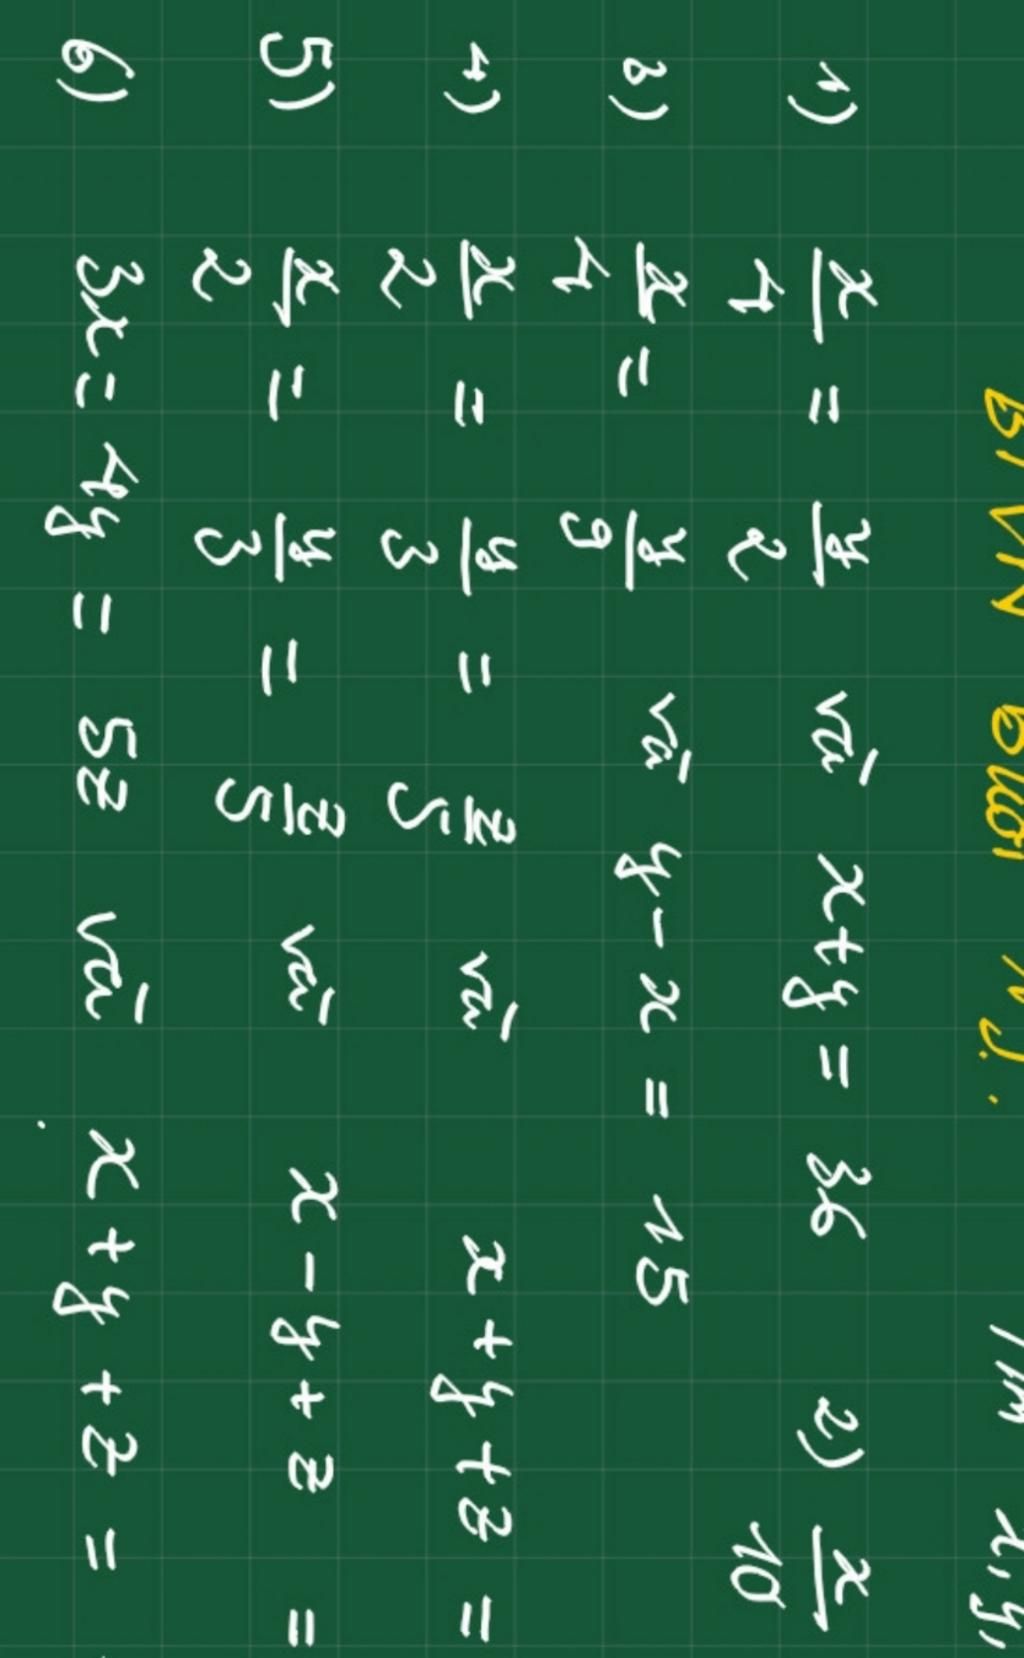 BTVN Buổi N J. Tìm x, y,
1) x/4 = y/2 và x + y = 36 2) x/10
3) x/4 = y/9 và y - x = 15
4) x/2 = y/3 = z/5 và x + y + z =
5) x/2 = y/3 = z/5 và x - y + z =
6) 3x = 4y = 5z và x + y + z =